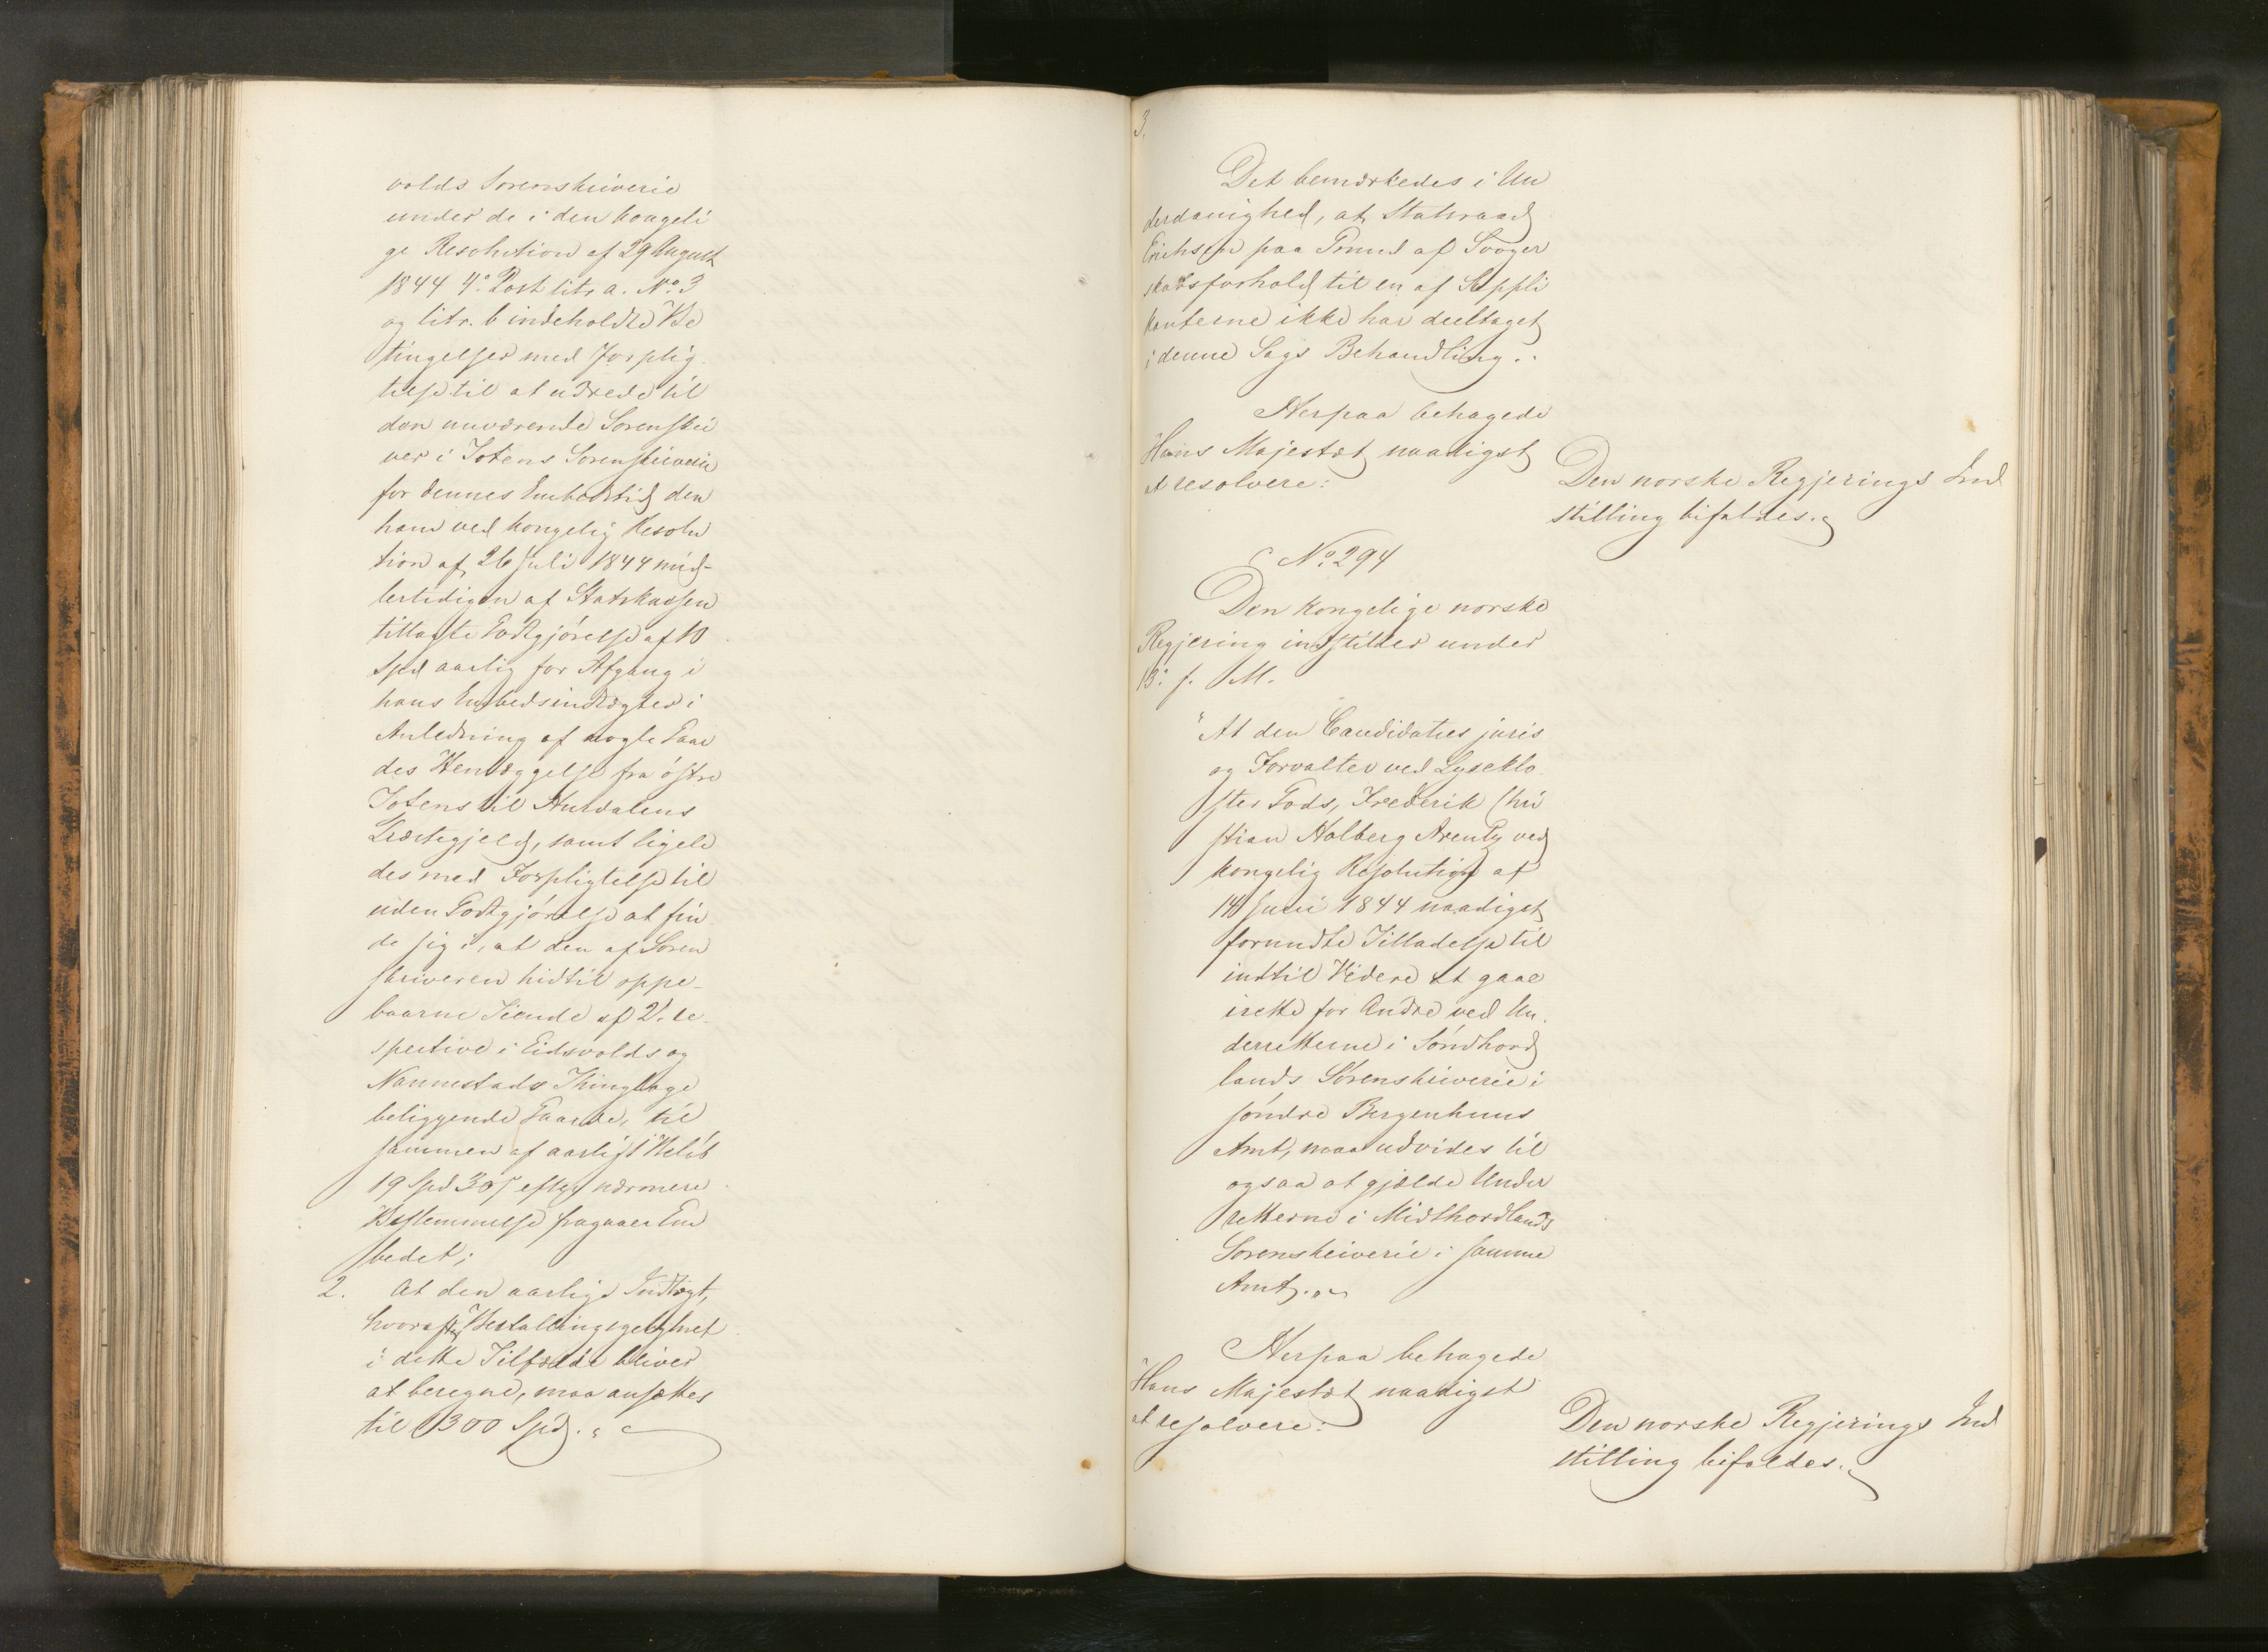 volds Sorenskriverie
under de i den kongeli
ge Resolution af 29 August
1844 4o. Post litr. a. No. 3
og litr. b indeholdte Be
tingelser med Forplig
telse til at udrede til
den nuværende Sorenskri
ver i Totens Sorenskriverie
for dennes Embedstid den
ham ved kongelig Resolu
tion af 26 Juli 1844 mid-
lertidigen af Statskassen
tillagte Godtgjörelse af 10
Spd aarlig for Afgang i
hans Embedsindtægter i
Anledning af nogle Gaar
des Henlæggelse fra östre
Totens til Hurdalens
Præstegjeld, samt ligele
des med Forpligtelse til
uden Godtgjörelse at fin
de sig i, at den af Soren
skriveren hidtil oppe-
baarne Tiende af 2de re-
spective i Eidsvolds og
Nannestads Thinglage
beliggende Gaarde, til
sammen af aarligt Belöb
19 Spd efter nærmere
Bestemmelse fragaaer Em
bedet;
2. At den aarlige Indtægt,
hvoraf Bestallingsgebyhret
i dette Tilfælde bliver
at beregne, maa ansættes
til 1300 Spd.
3.
Det bemærkedes i Un
derdanighed, at Statsraad
Erichsen paa Grund af Svoger
skabsforhold til en af Suppli
kanterne ikke har deeltaget
i denne Sags Behandling.
Herpaa behagede
Hans Majestæt naadigst
at resolvere:
Den norske Regjerings Ind
stilling bifaldes.
No. 294
Den kongelige norske
Regjering indstiller under
13. f. M.
"At den Candidatus juris
og Forvalter ved Lyseklo
ster Gods, Frederik Chri
stian Holberg Arentz ved
kongelig Resolution af
14 Juni 1844 naadigst
forundte Tilladelse til
indtil Videre at gaae
irette for Andre ved Un
derretterne i Söndhord
lands Sorenskriverie i
söndre Bergenhuus
Amt, maa udvides til
ogsaa at gjælde Under
retterne i Midthordlands
Sorenskriverie i samme
Amt."
Herpaa behagede
Hans Majestæt naadigst
at resolvere:
Den norske Regjerings Ind
stilling bifaldes.